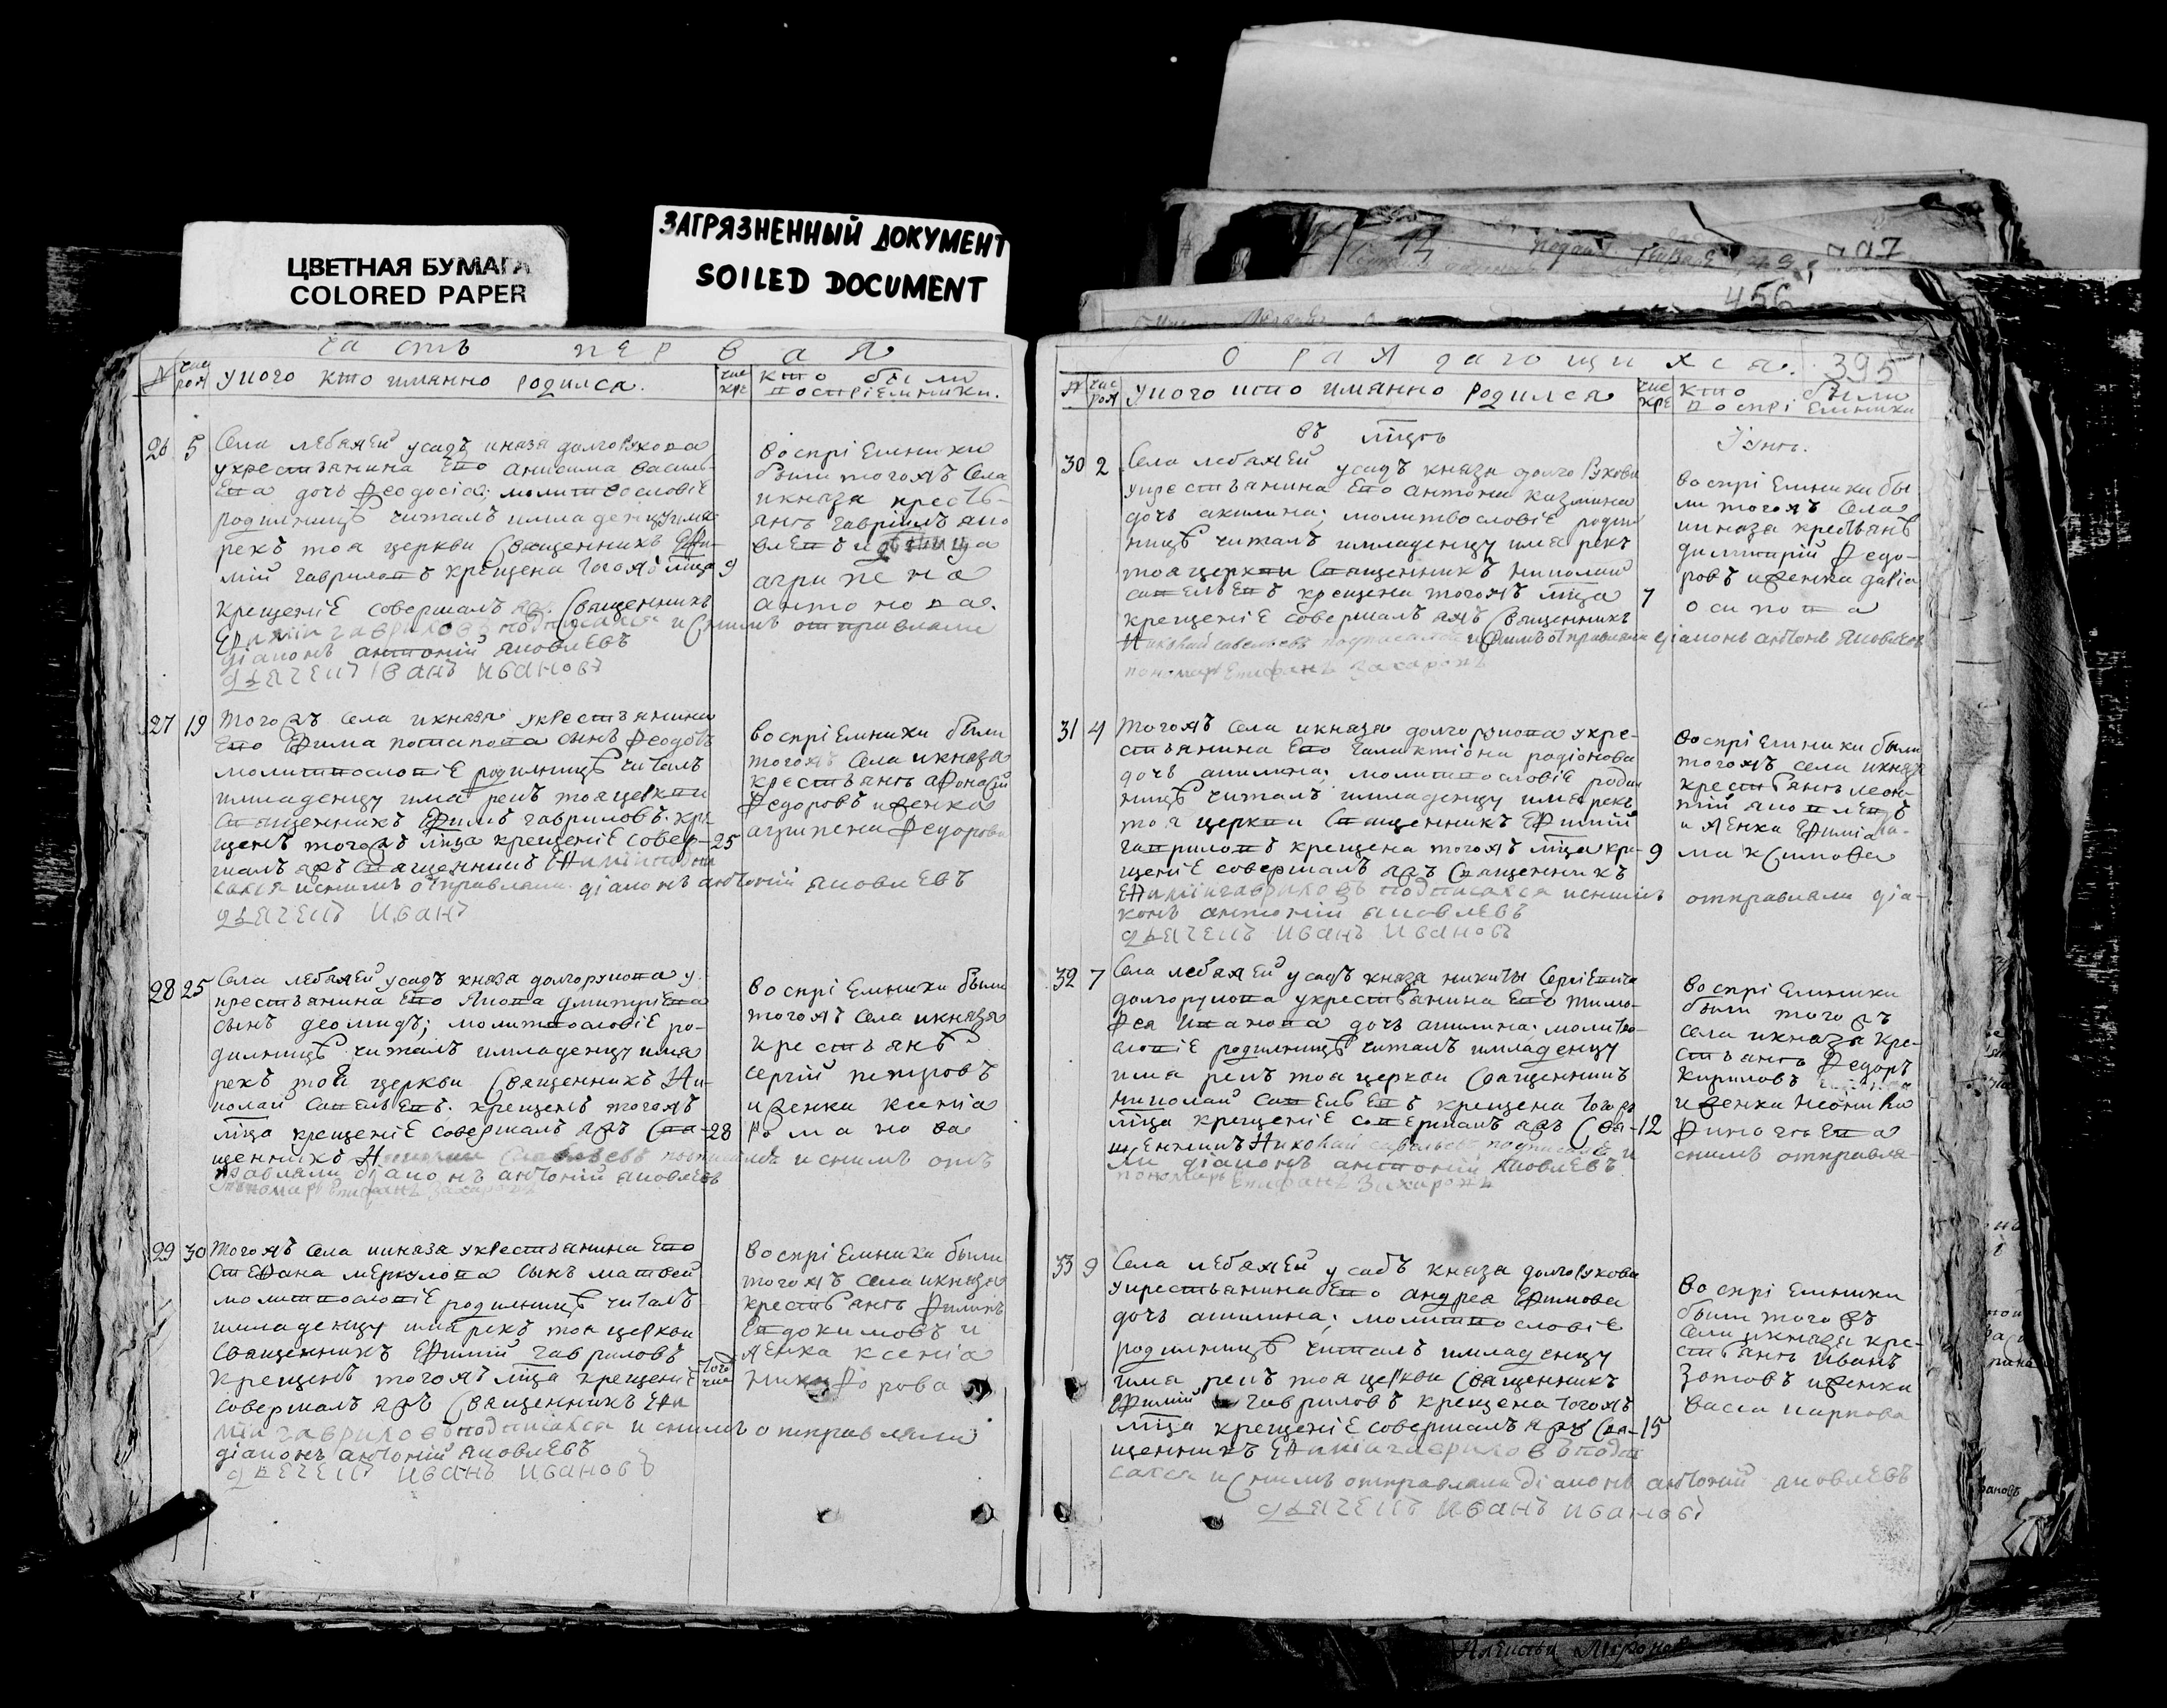 ЦВЕТНАЯ БУМАГА
COLORED PAPER
ЗАГРЯЗНЕННЫЙ ДОКУМЕНТ
SOILED DOCUMENT
456
часть первая
№ чис рож
у ного кто имянно родился.
чис кре
кто были
воспріемники.
26 5
Села лебяжей усадъ князя долгорукова
укрестьянина ево анисима василь-
ева дочь Феодосіа; молитвословіе
родилницѣ читалъ имладенцу имя
рекъ тоя церкви священникъ Ефи-
мій гавриловъ крещена тогожъ мѣца 9
крещеніе совершалъ яжъ священникъ
Ефимій гавриловъ подписался и снимъ отправляли
діаконъ антоній яковлевъ
дьячекъ Иванъ Ивановъ
воспріемники
были тогожъ села
икнязя кресть-
янъ гавріилъ яко
влевъ и девица
агрипена
антонова.
27 19
тогожъ села икнязя укрестьянина
ево Ефима потапова сынъ Феодотъ
молитвословіе родилницѣ читалъ
имладенцу имя рекъ тоя церкви
священникъ Ефимъ гавриловъ. кре-
щенъ тогожъ мѣца крещеніе совер- 25
шалъ яжъ священникъ
сался иснимъ отправляли діаконъ антоній яковлевъ
дьячекъ Иванъ
воспріемники были
тогожъ села икнязя
крестьянъ афонасій
Федоровъ иженка
агрипена Федорова
28 25
Села лебяжей усадъ князя долгорукова у
крестьянина ево якова дмитріева
сынъ деомидъ; молитвословіе ро-
дилницѣ читалъ имладенцу имя
рекъ тоя церкви священникъ Ни-
колай савельевъ. крещенъ тогожъ
мѣца крещеніе совершалъ яжъ свя- 28
щенникъ Николай савельевъ и снимъ отъ
правляли діаконъ антоній яковлевъ
пономарь Епифанъ Захаровъ
воспріемники были
тогожъ села икнязя
крестьянъ
сергій петровъ
иженка ксенія
романова
29 30
тогожъ села икнязя укрестьянина ево
стефана меркулова сынъ матвей
молитвословіе родилницѣ читалъ
имладенцу имя рекъ тоя церкви
священникъ Ефимій гавриловъ
крещенъ тогожъ мѣца крещеніе того чис
совершалъ яжъ священникъ Ефи
мій гавриловъ подписался и снимъ отправляли
діаконъ антоній яковлевъ
дьячекъ Иванъ Ивановъ
воспріемники были
тогожъ села икнязя
крестьянъ Филипъ
Евдокимовъ и
женка ксенія
Никифорова
о раждающихся. 395
№ чис рож
у ного кто имянно родился
чис кре
кто были
воспріемники
въ мѣцѣ Іюнѣ.
30 2
Села лебяжей усадъ князя долгорукова
укрестьянина ево антона казмина
дочь акилина; молитвословіе родил
ницѣ читалъ имладенцу имя рекъ
тоя церкви священникъ николай
савельевъ крещена тогожъ мѣца 7
крещеніе совершалъ яжъ священникъ
Николай савельевъ подписался и снимъ отправляли діаконъ антонъ яковлевъ
пономарь Епифанъ Захаровъ
воспріемники бы
ли тогожъ села
икнязя крестьянъ
димитрій Федо-
ровъ иженка дарія
осипова
31 4
тогожъ села икнязя долгорукова укре-
стьянина ево галактіона радіонова
дочь акилина; молитвословіе родил
ницѣ читалъ имладенцу имя рекъ
тоя церкви священникъ Ефимій
гавриловъ крещена тогожъ мѣца кре- 9
щеніе совершалъ яжъ священникъ
Ефимій гавриловъ подписался иснимъ отправляли діа-
конъ антоній яковлевъ
дьячекъ Иванъ Ивановъ
воспріемники были
тогожъ села икнязя
крестьянъ леон-
тій яковлевъ
и женка Ефимія
максимова
32 7
Села лебяжей усадъ князя никиты сергіевича
долгорукова укрестьянина ево тимо-
фея Иванова дочь акилина. молитво-
словіе родилницѣ читалъ имладенцу
имя рекъ тоя церкви священникъ
николай савельевъ крещена тогожъ
мѣца крещеніе совершалъ яжъ свя- 12
щенникъ Николай савельевъ подписался и
ли діаконъ антоній яковлевъ
пономарь Епифанъ Захаровъ
воспріемники
были тогожъ
села икнязя кре-
стьянъ Федоръ
Кириловъ
иженка
Финогеева
снимъ отправля-
33 9
Села лебяжей усадъ князя долгорукова
укрестьянина ево андрея Ефимова
дочь акилина; молитвословіе
родилницѣ читалъ имладенцу
имя рекъ тоя церкви священникъ
Ефимій гавриловъ крещена тогожъ
мѣца крещеніе совершалъ яжъ свя- 15
щенникъ Ефимій гавриловъ подпи
сался и снимъ отправляли діаконъ антоній яковлевъ
дьячекъ Иванъ Ивановъ
воспріемники
были тогожъ
села икнязя кре-
стьянъ иванъ
Зотовъ иженка
васса карпова